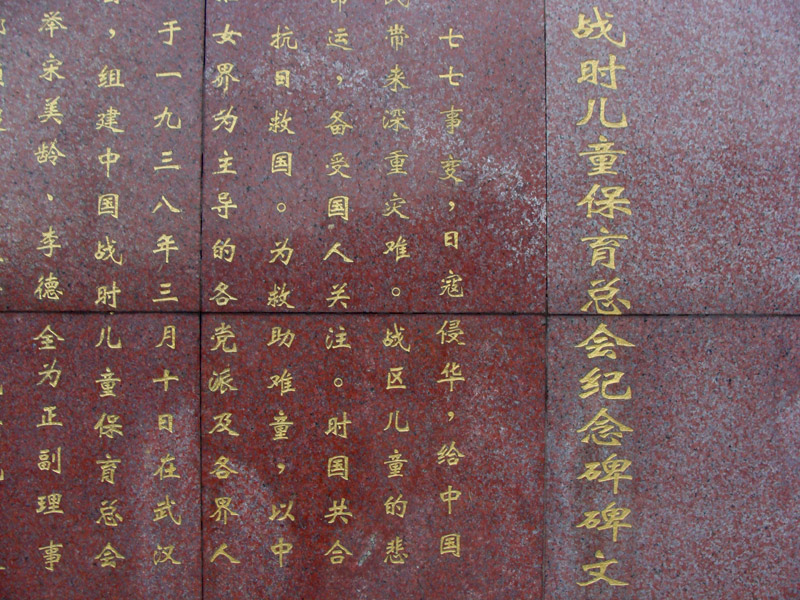 战时儿童保育总会纪念碑碑文
七七事变，日寇侵华，给中国
带来深重灾难。战区儿童的悲
运，备受国人关注。时国共合
抗日救国。为救助难童，以中
女界为主导的各党派及各界人
于一九三八年三月十日在武汉
，组建中国战时儿童保育总会
举宋美龄、李德全为正副理事